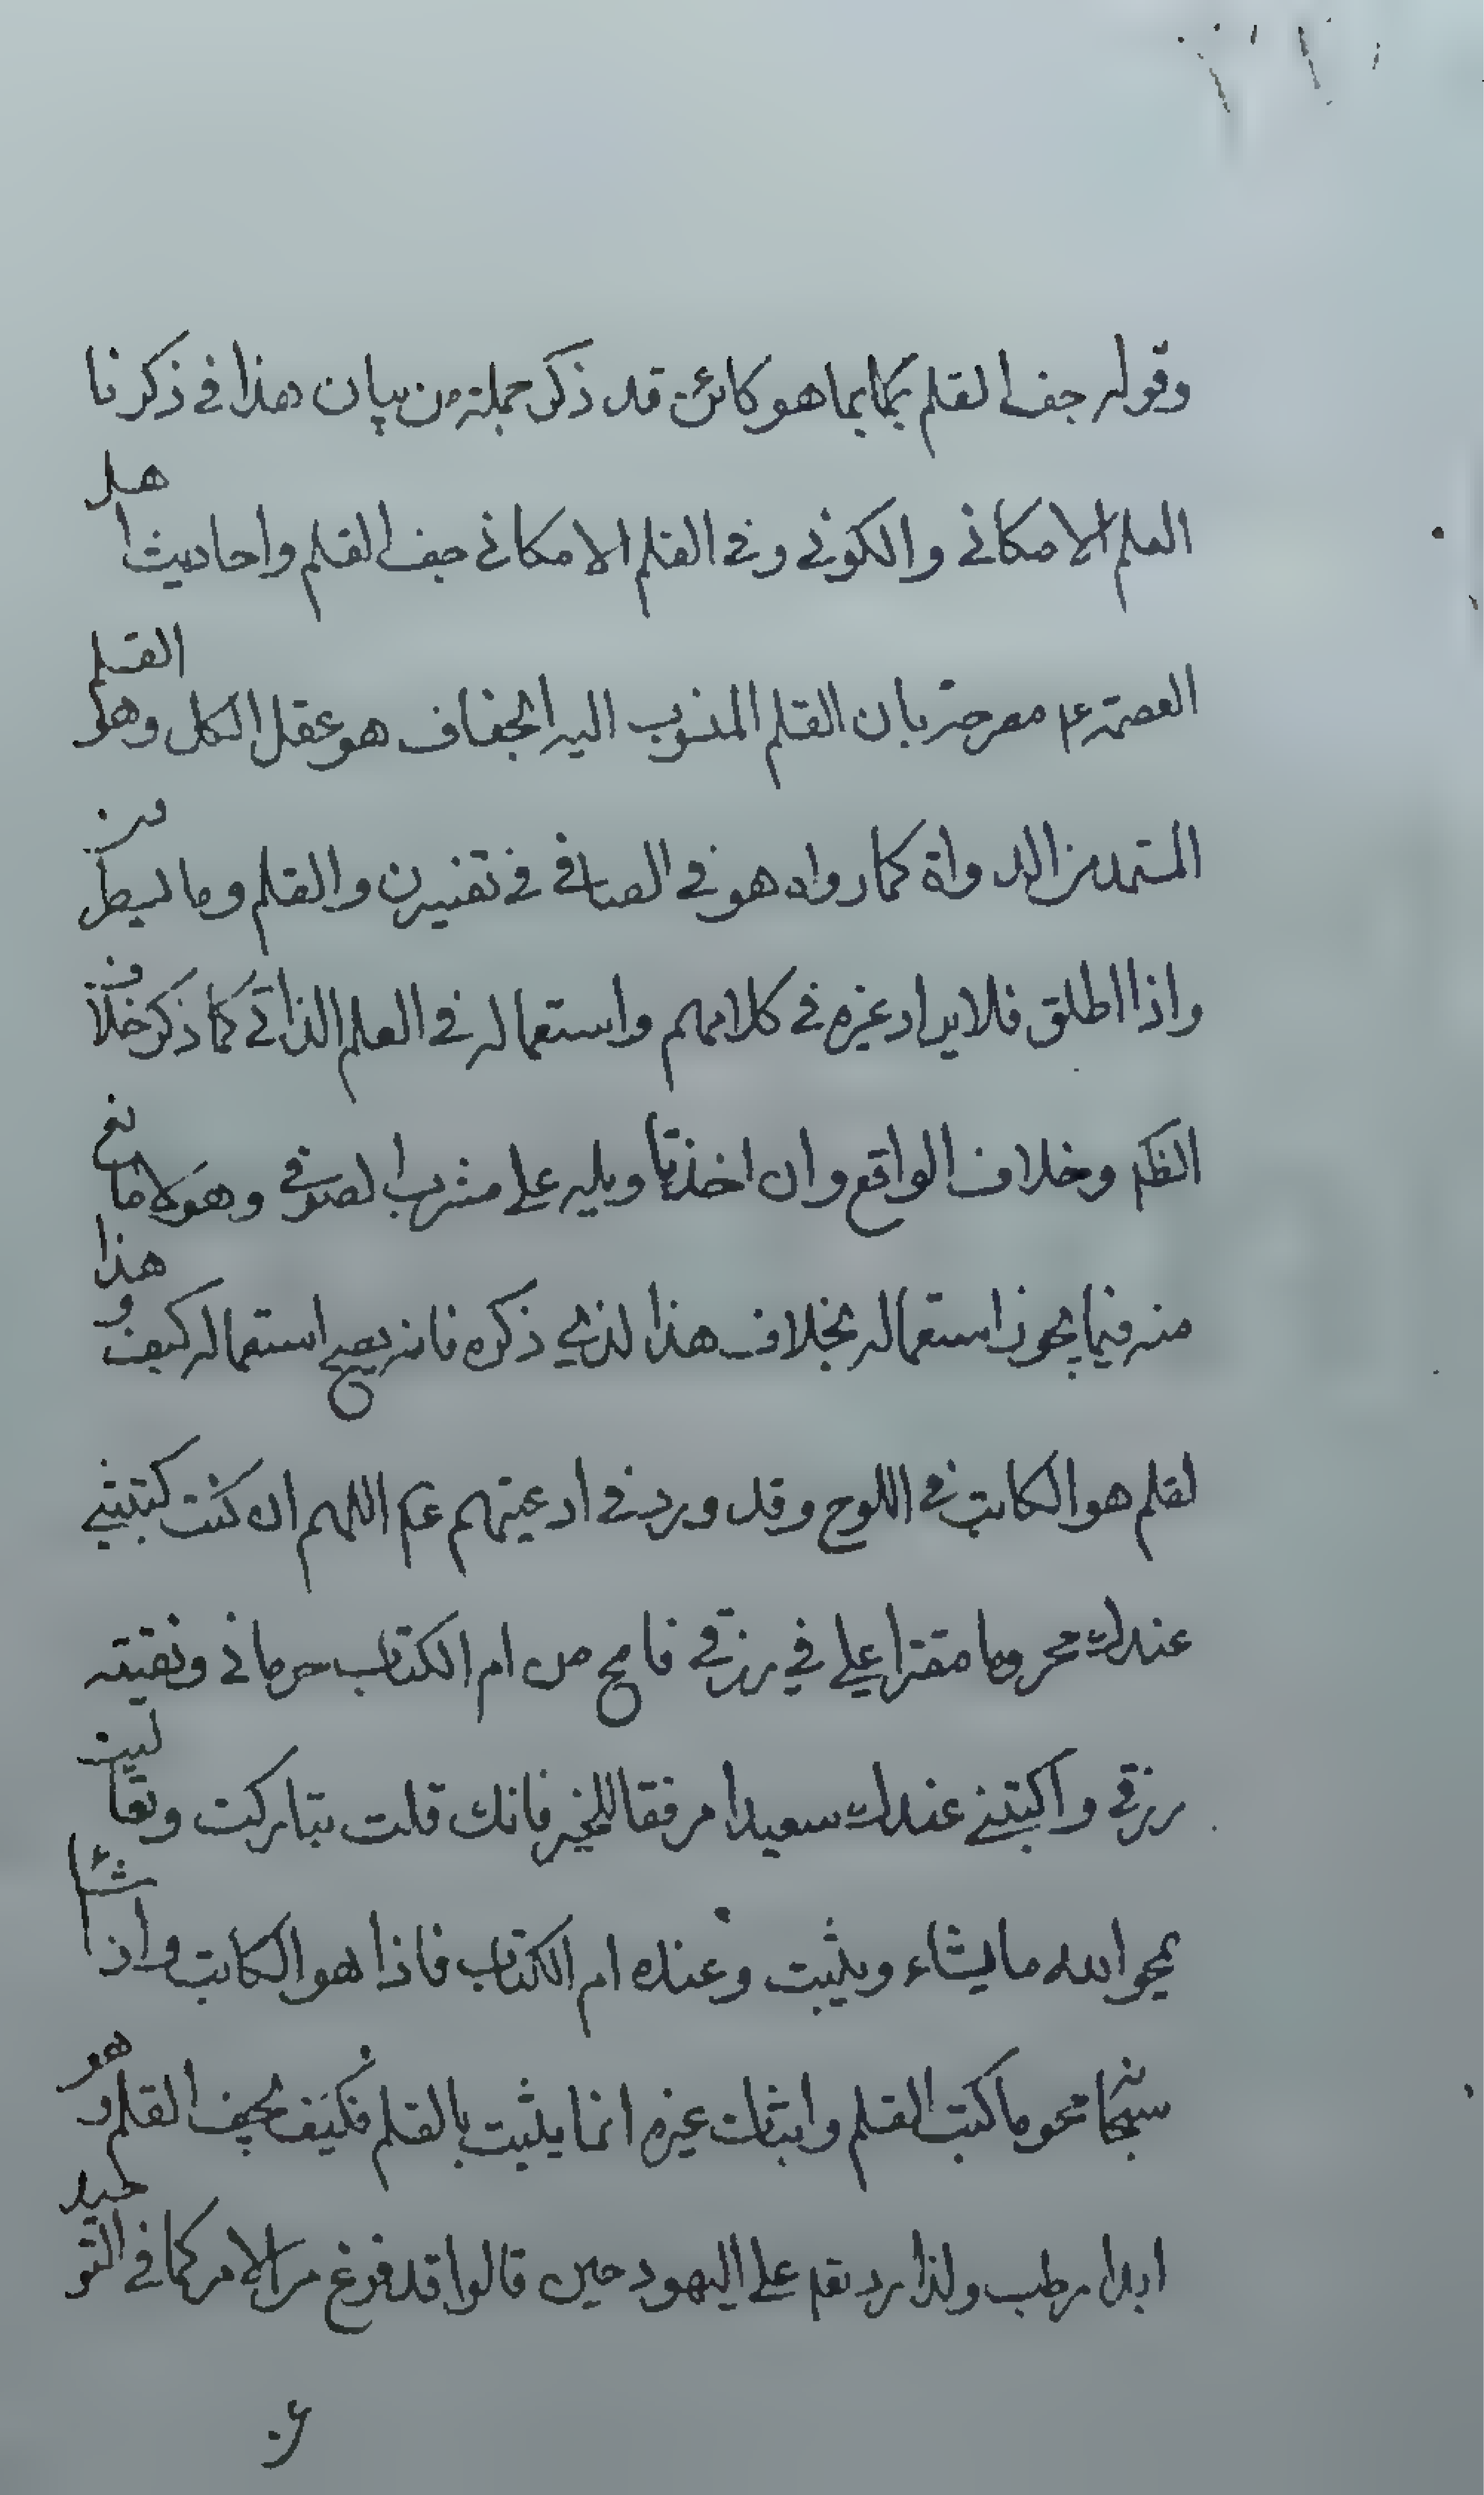 وقوله جف القلم بما بما هو كائن قد ذكر جملة من بيان هذا في ذكرنا
العلم الامكاني والكوني وفي القلم الامكاني جف القلم واحاديث اهل
العصمة ع مصرحة بان القلم المنسوب اليه الجفاف هو عقل الكل وهو القلم
المستمد من الدواة كما رواه هو في الصافي في تفسير ن والقلم وما يسطرون
واذا اطلق فلا يراد غيره في كلامهم واستعماله في العلم الذاتي كما ذكر خلاف
الظم وخلاف الواقع وان اخذ تاويله على مشرب الصوفي وهو لا مانع
منه فيما يجوز استعماله بخلاف هذا الذي ذكره فانه يصح استعماله كيف وهذا
لقلم هو الكاتب في اللوح وقد ورد في ادعيتهم عم اللهم ان كنت كتبتني
عندك محروما مقترا علي في رزقي فامح من ام الكتاب حرماني وتقتير
رزقي واكتبني عندك سعيدا مرفقا للخير فانك قلت تباركت وتعاليت
يمحو الله ما يشاء ويثبت وعنده ام الكتاب فاذا هو الكاتب واذا شاء
سبحانه محو ما كتب القلم واثبات غيره انما يثبت بالقلم فكيف يجف القلم وهو
ابدا رطب ولذا رد تعم على اليهود حين قالوا قد فرغ من الامر كما في التوحيد
عن